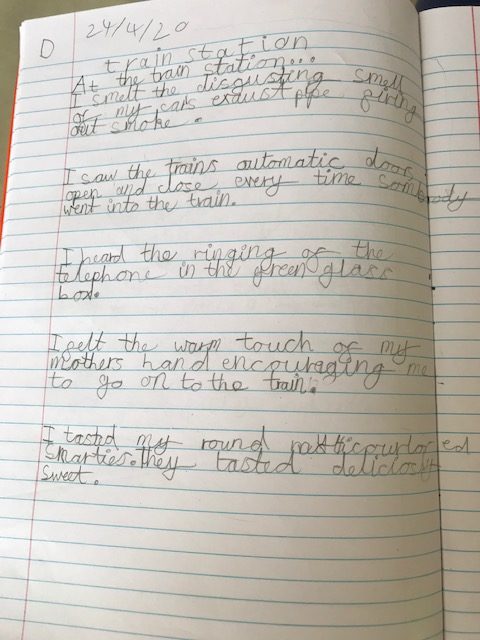 D
24/4/20
train station
At the train station...
I smelt the disgusting smell
of my cars exaust pipe giving
out smoke.
I saw the trains automatic doors
open and close every time sombrody
went into the train.
I heard the ringing of the
telephone in the green glass
box.
I felt the warm touch of my
mothers hand encouraging me
to go on to the train.
I tasted my round
smarties.they tasted
sweet.